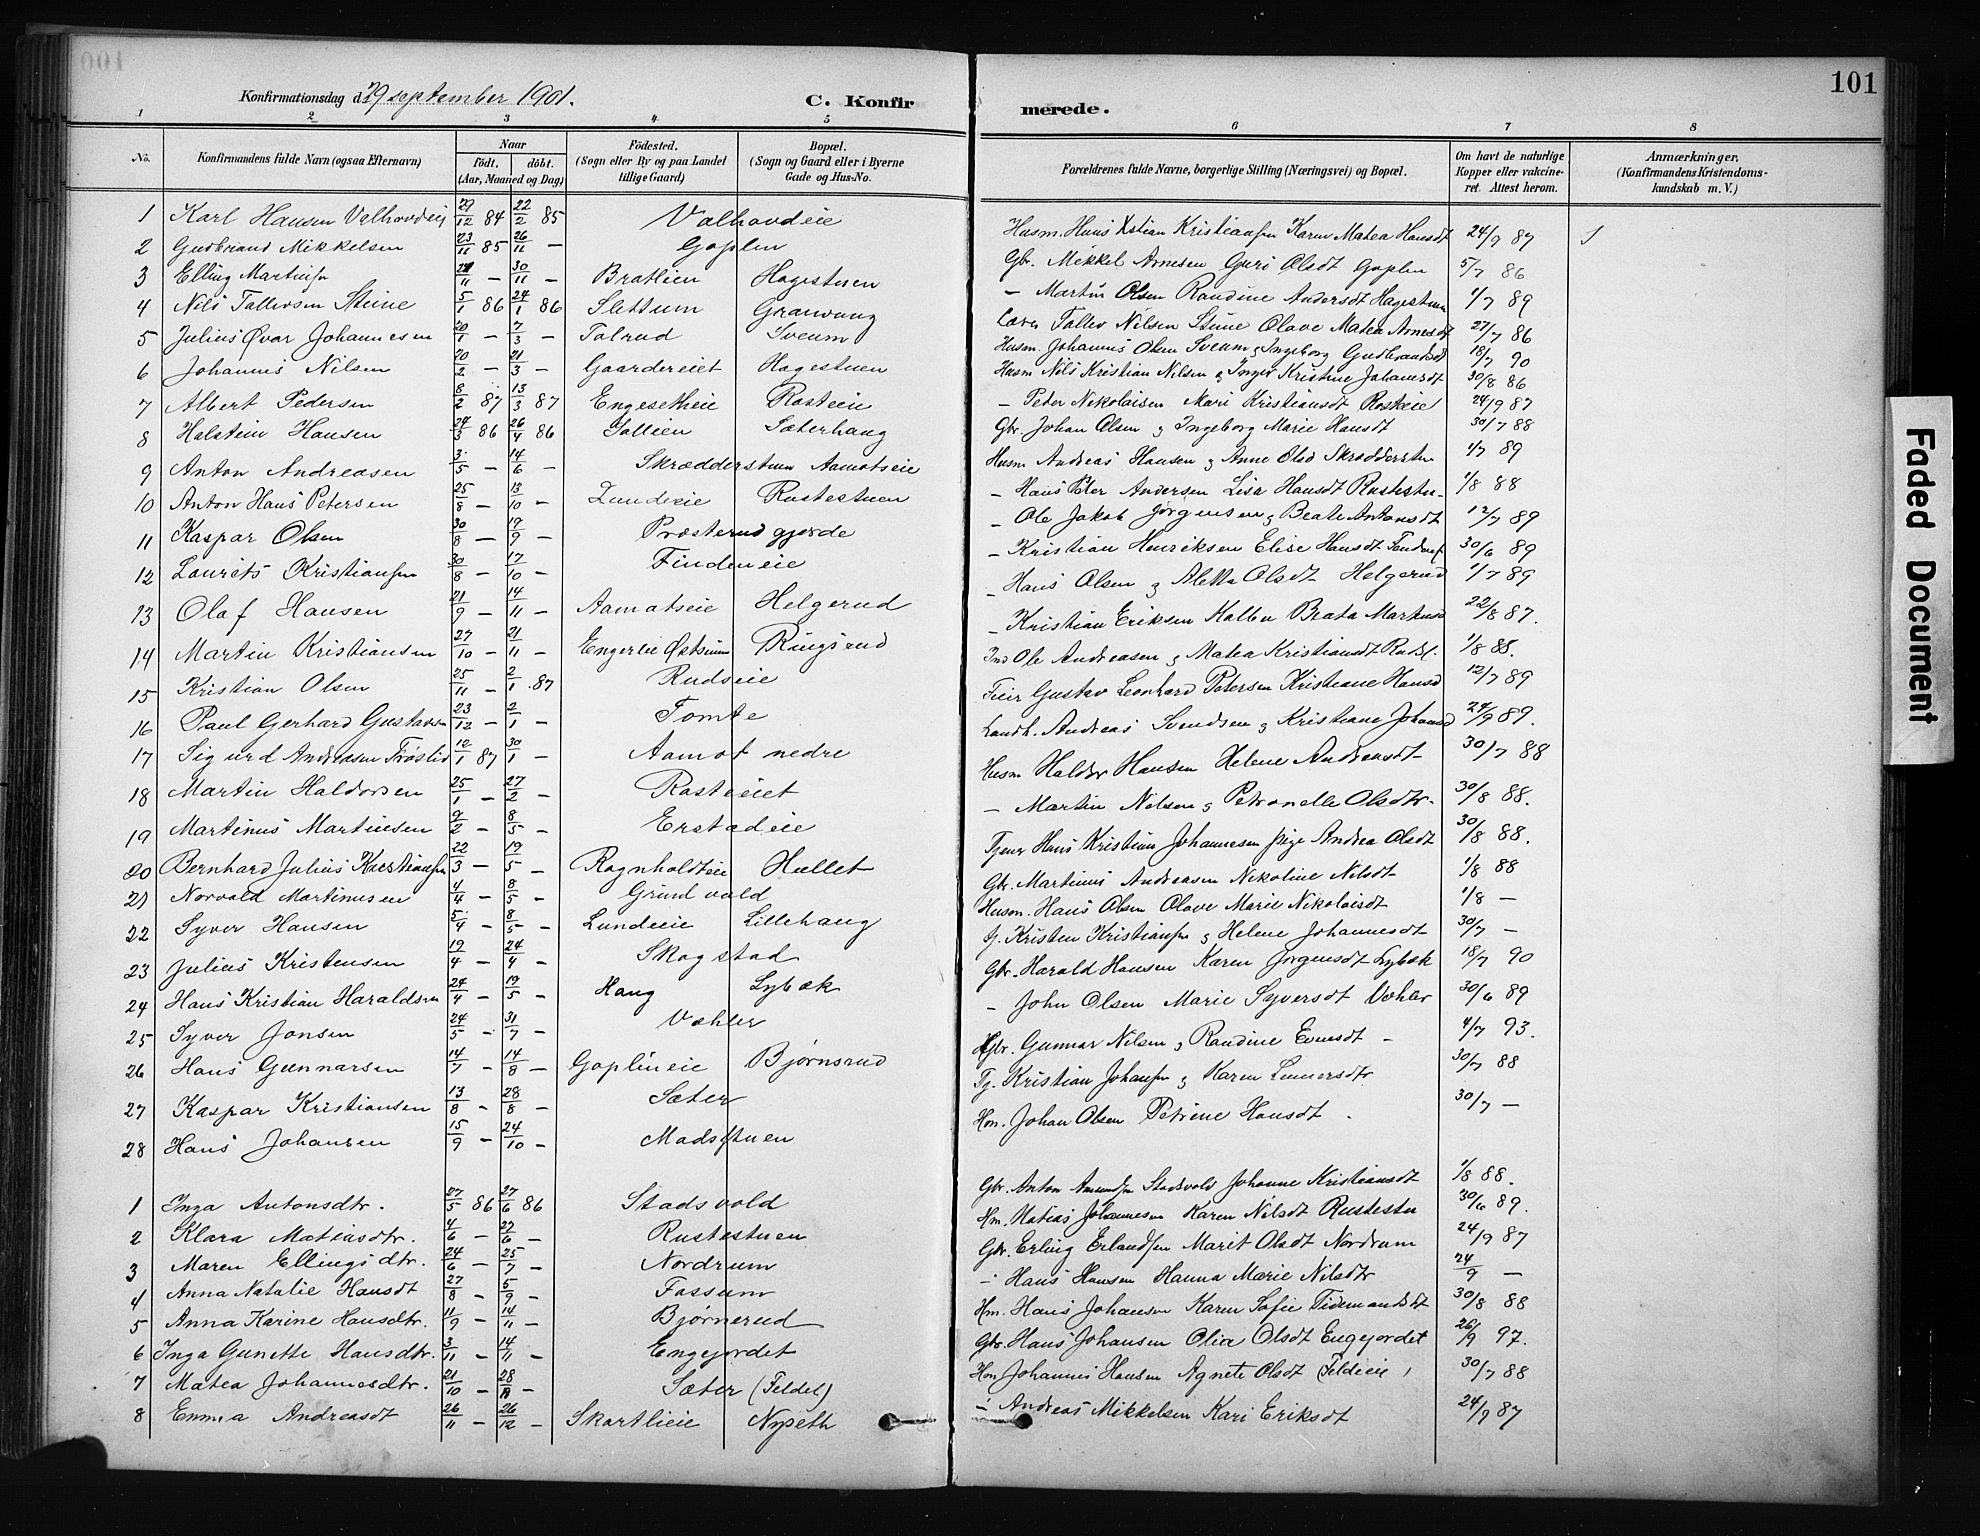 101
Konfirmationsdag d. 29 september 1901.
C. Konfirmerede.
1 2 3 4 5 6 7 8
No.
Konfirmandens fulde Navn (ogsaa Efternavn)
Naar
født. døbt.
(Aar, Maaned og Dag)
Fødested.
(Sogn eller By og paa Landet tillige Gaard)
Bopæl.
(Sogn og Gaard eller i Byerne Gade og Hus-No.
Forældrenes fulde Navne, borgerlige Stilling (Næringsvei) og Bopæl.
Om havt de naturlige Kopper eller vakcineret. Attest herom.
Anmærkninger.
(Konfirmandens Kristendomskundskab m. V.)
1 Karl Hansen Valhovdeie 12 84 22/2 85 Valhovdeie Husm. Hans Kristian Kristiansen Karen Matea Hansdt 24/9 87
2 Gudbrand Mikkelsen 23/11 85 26/11 — Goplen Gbr. Mikkel Arnesen Guri Olsdt Goplen 5/7 86
3 Elling Martinsen 30/11 — Bratlien Hagestuen — Martin Olsen Randine Andersdt Hagestuen 1/7 89
4 Nils Tollevsen Steine 5/1 86 24/1 86 Slettum Granvang Tollev Nilsen Steine Olave Matea Arnesdt 27/7 86
5 Julius Øvar Johannesen 20/1 — 7/3 — Tolrud Sveum Husm. Johannes Olsen Sveum & Ingeborg Gudbrandsdt 18/7 90
6 Johannes Nilsen 20/2 — 21/3 — Gaardereiet Hagestuen Husm Nils Kristian Nilsen & Inger Kristine Johansdt 30/8 86
7 Albert Pedersen 8/2 87 13/3 87 Engesetheie Rosteie — Peder Nikolaisen Mari Kristiansdt Rosteie 24/9 87
8 Halstein Hansen 24/3 86 26/4 86 Sollien Sæterhaug Gbr. Johan Olsen & Ingeborg Marie Hansdt 30/7 88
9 Anton Andreasen 3/5 — 14/6 — Skrædderstuen Aamotseie Husm Andreas Hansen & Anne Olsd Skrædderstu 4/7 89
10 Anton Hans Petersen 25/8 — 13/10 — Lundeeie Rustestuen — Hans Peter Andersen Lisa Hansdt Rustestu 1/8 88
11 Kaspar Olsen 30/8 — 19/9 — Præsterud gjorde — Ole Jakob Jørgensen & Beate Antonsdt 12/7 89
12 Laurits Kristiansen 30/8 — 17/10 — Findeneie — Kristian Henriksen Elise Hansdt 30/6 89
13 Olaf Hansen 21/9 — 14/11 — Aamotseie Helgerud — Hans Olsen & Aletta Olsdt Helgerud 1/7 89
14 Martin Kristiansen 27/10 — 21/11 — Engerleie Østsinni Ringsrud — Kristian Eriksen Kolben Beata Martinsd 22/8 87.
15 Kristian Olsen 25/11 — 2/1 87 Rudseie Ind Ole Andreasen & Matea Kristiansdt 1/8 88.
16 Paul Gerhard Gustavsen 23/12 — 2/1 — Tomte Feier Gustav Leonhard Petersen Kristiane Hansd 12/7 89
17 Sigurd Andreasen Frøslid 12/1 87 30/1 — Aamot nedre Landh. Andreas Svendsen & Kristiane Johansd 24/9 89.
18 Martin Haldorsen 25/1 — 27/2 — Rosteeiet Husm Haldor Hansen Helene Andreasdt 30/7 88
19 Martinus Martinsen 9/2 — 8/5 — Erstadeie — Martin Nilsen & Petronelle Olsdtr. 30/8 88.
20 Bernhard Julius Kristiansen 22/3 — 19/5 — Rognholdteie Hullet Tjener Hans Kristian Johannesen pige Andrea Olsdt 30/8 88.
21 Norvald Martinusen 4/4 — 8/5 — Grundvold Gbr. Martinus Andreasen Nikoline Nilsdt 1/8 88
22 Syver Hansen 5/4 — 8/5 — Lundeeie Lillehaug Husm. Hans Olsen Olave Marie Nikolaisdt 1/8 —
23 Julius Kristensen 19/4 — 24/4 — Skogstad Kristen Kristiansen & Helene Johannesdt 30/7 —
24 Hans Kristian Haraldsen 24/4 — 19/5 — Haug Lybæk Gbr. Harald Hansen Karen Jørgensdt Lybæk 18/7 90
25 Syver Jonsen 24/5 — 31/7 — Væhler — John Olsen Marie Syversdt Væhler 30/6 89
26 Hans Gunnarsen 14/7 — 14/8 — Goplineie Bjørnsrud Gbr. Gunnar Nilsen & Randine Evensdt — 4/7 93.
27 Kaspar Kristiansen 13/8 — 28/8 — Sæter Tj. Kristian Johansen & Karen Linnersdtr 30/7 88
28 Hans Johansen 15/9 — 24/10 — Madsstuen Hm. Johan Olsen Petrine Hansdt. 30/7 —
1 Inga Antonsdtr. 27/5 86 27/6 86 Stadsvold Gbr. Anton Amundsen Stadsvold Johanne Kristiansdt 1/8 88.
2 Klara Matiasdtr. 4/6 — 27/6 — Rustestuen Hm. Matias Johannesen Karen Nilsdt Rustestu 30/6 89.
3 Maren Ellingsdtr. 24/6 — 25/7 — Nordrum Gbr. Erling Erlandsen Marit Olsdt Nordrum 24/9 87
4 Anna Natalie Hansdt 27/8 — 5/9 — Fossum — Hans Hansen Hanna Marie Nilsdtr 24/9 —
5 Anna Karine Hansdtr. 11/9 — 14/11 — Bjørnerud Hm. Hans Johansen Karen Sofie Tidemandsdt 30/8 88
6 Inga Gunette Hansdtr. 3/11 — 14/11 — Engejordet Gbr. Hans Johansen Olia Olsdt Engejordet 26/9 97.
7 Matea Johannesdtr. 21/10 — 28/11 — Sæter (Feldet) Hm Johannes Hansen Agnete Olsdt Feldeie 30/7 88
8 Emma Andreasdt 26/11 — 26/12 — Skartlieie Nyseth — Andreas Mikkelsen Kari Eriksdt 24/9 87
Faded Document